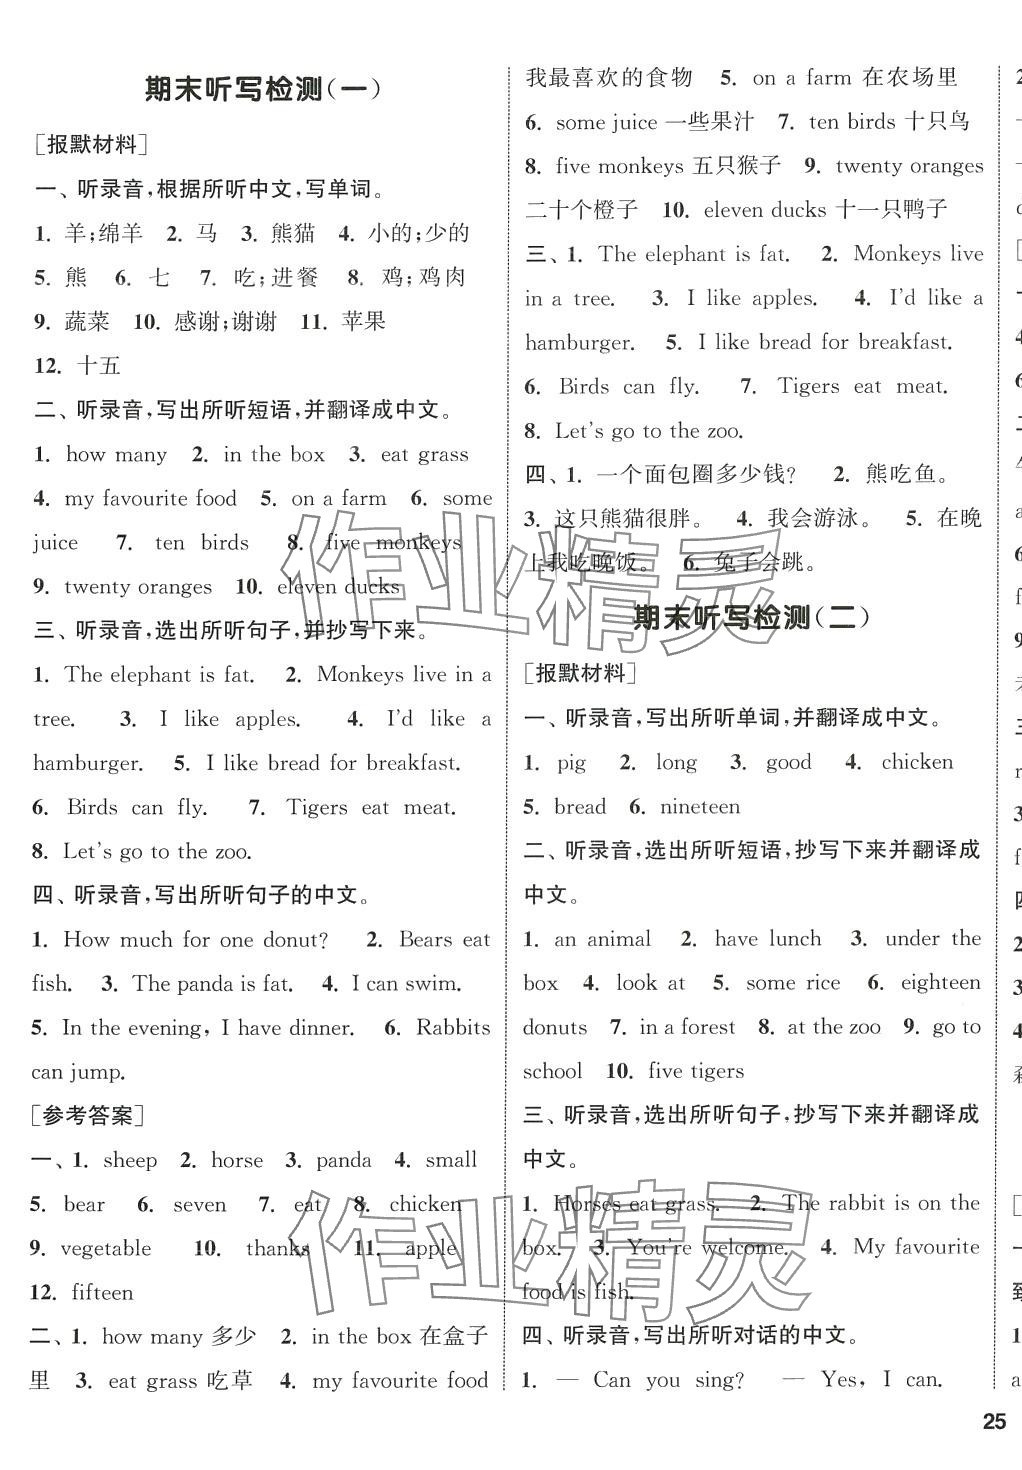 期末听写检测(一)
[报默材料]
一、听录音,根据所听中文,写单词。
1. 羊;绵羊 2. 马 3. 熊猫 4. 小的;少的
5. 熊 6. 七 7. 吃;进餐 8. 鸡;鸡肉
9. 蔬菜 10. 感谢;谢谢 11. 苹果
12. 十五
二、听录音,写出所听短语,并翻译成中文。
1. how many 2. in the box 3. eat grass
4. my favourite food 5. on a farm 6. some
juice 7. ten birds 8. five monkeys
9. twenty oranges 10. eleven ducks
三、听录音,选出所听句子,并抄写下来。
1. The elephant is fat. 2. Monkeys live in a
tree. 3. I like apples. 4. I'd like a
hamburger. 5. I like bread for breakfast.
6. Birds can fly. 7. Tigers eat meat.
8. Let's go to the zoo.
四、听录音,写出所听句子的中文。
1. How much for one donut? 2. Bears eat
fish. 3. The panda is fat. 4. I can swim.
5. In the evening, I have dinner. 6. Rabbits
can jump.
[参考答案]
一、1. sheep 2. horse 3. panda 4. small
5. bear 6. seven 7. eat 8. chicken
9. vegetable 10. thanks 11. apple
12. fifteen
二、1. how many 多少 2. in the box 在盒子
里 3. eat grass 吃草 4. my favourite food
我最喜欢的食物 5. on a farm 在农场里
6. some juice 一些果汁 7. ten birds 十只鸟
8. five monkeys 五只猴子 9. twenty oranges
二十个橙子 10. eleven ducks 十一只鸭子
三、1. The elephant is fat. 2. Monkeys live
in a tree. 3. I like apples. 4. I'd like a
hamburger. 5. I like bread for breakfast.
6. Birds can fly. 7. Tigers eat meat.
8. Let's go to the zoo.
四、1. 一个面包圈多少钱? 2. 熊吃鱼。
3. 这只熊猫很胖。 4. 我会游泳。 5. 在晚
上我吃晚饭。 6. 兔子会跳。
期末听写检测(二)
[报默材料]
一、听录音,写出所听单词,并翻译成中文。
1. pig 2. long 3. good 4. chicken
5. bread 6. nineteen
二、听录音,选出所听短语,抄写下来并翻译成
中文。
1. an animal 2. have lunch 3. under the
box 4. look at 5. some rice 6. eighteen
donuts 7. in a forest 8. at the zoo 9. go to
school 10. five tigers
三、听录音,选出所听句子,抄写下来并翻译成
中文。
1. Horses eat grass. 2. The rabbit is on the
box. 3. You're welcome. 4. My favourite
food is fish.
四、听录音,写出所听对话的中文。
1. — Can you sing? — Yes, I can.
25
作业精灵
作业精灵